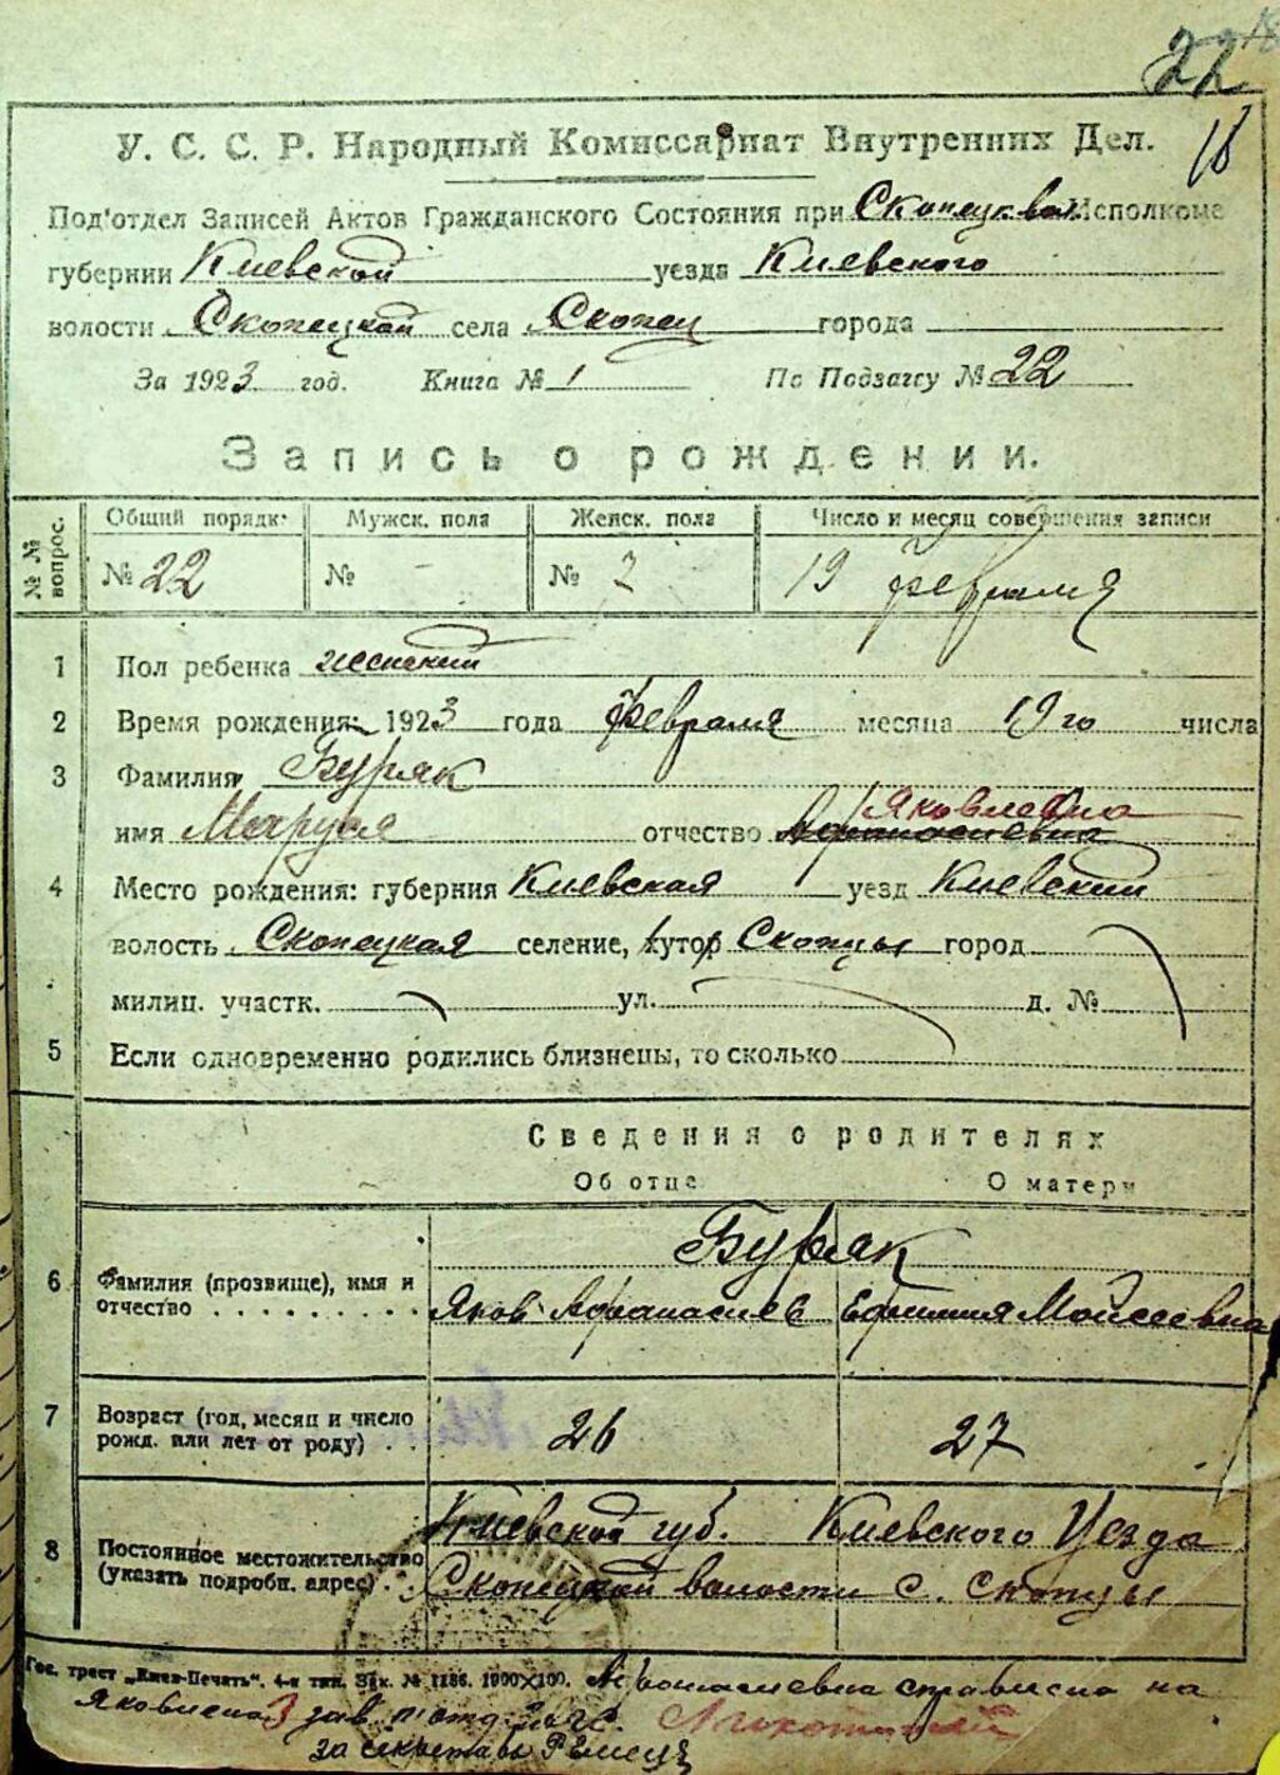 22
18
У. С. С. Р. Народный Комиссариат Внутренних Дел.
Под'отдел Записей Актов Гражданского Состояния при Скопецк. вол. Исполкоме
губернии Киевской уезда Киевского
волости Скопецкой села Скопец города
За 1923 год. Книга № 1 По Подзагсу № 22
Запись о рождении.
№ № вопрос. Общий порядк. Мужск. пола Женск. пола Число и месяц совершения записи
№ 22 № - № 7 19 февраля
1 Пол ребенка женский
2 Время рождения: 1923 года февраля месяца 19го числа
3 Фамилия Буряк
Яковлевна
имя Маруся отчество Афанасиевна
4 Место рождения: губерния Киевская уезд Киевский
волость Скопецкая селение, хутор Скопцы город
милиц. участк. ул. д. №
5 Если одновременно родились близнецы, то сколько
Сведения о родителях
Об отце О матери
Буряк
6 Фамилия (прозвище), имя и отчество Яков Афанасиев Ефимия Мойсеевна
7 Возраст (год, месяц и число рожд. или лет от роду) 26 27
Киевской губ. Киевского Уезда
8 Постоянное местожительство (указать подробн. адрес) Скопецкой волости с. Скопцы
Гос. трест „Киев-Печать“. 4-я тип. Зак. № 1186. 1000×100. Афонасиевна справлена на
Яковлевна зав. п. отд.
за секретаря